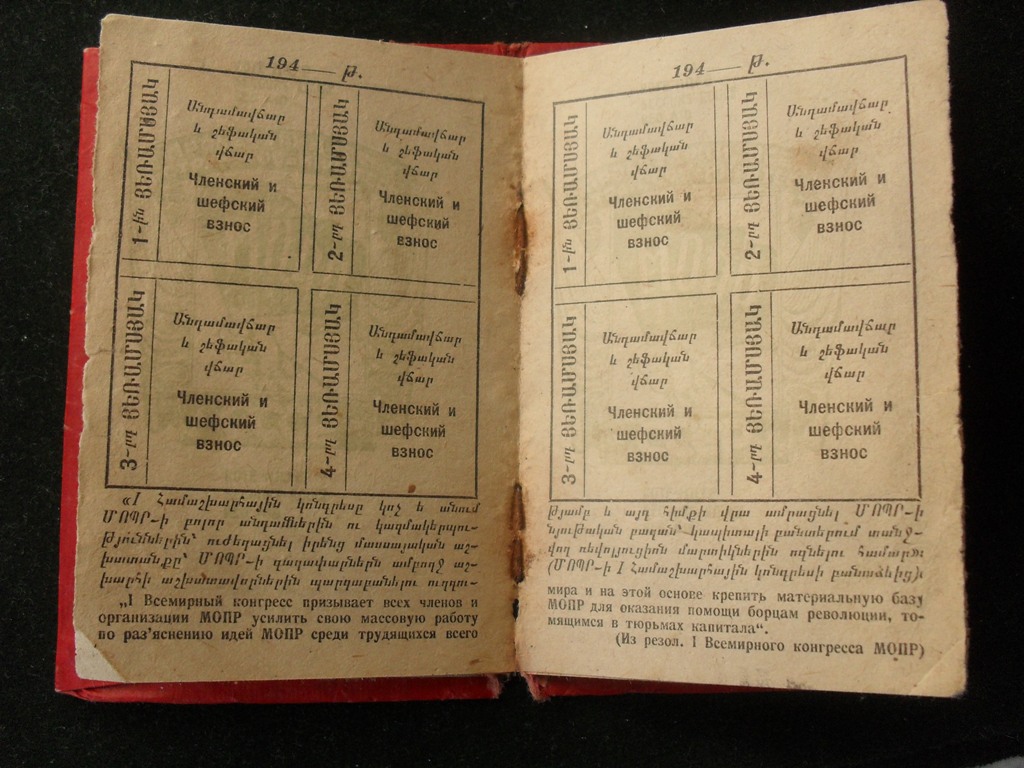 194 — թ.
1-ին ՅԵՌԱՄՍՅԱԿ
Անդամավճար
և շեֆական
վճար
Членский и
шефский
взнос
2-րդ ՅԵՌԱՄՍՅԱԿ
Անդամավճար
և շեֆական
վճար
Членский и
шефский
взнос
3-րդ ՅԵՌԱՄՍՅԱԿ
Անդամավճար
և շեֆական
վճար
Членский и
шефский
взнос
4-րդ ՅԵՌԱՄՍՅԱԿ
Անդամավճար
և շեֆական
վճար
Членский и
шефский
взнос
«I Համաշխարհային կոնգրեսը կոչ է անում
ՄՈՊՐ-ի բոլոր անդամներին ու կազմակերպու-
թյուններին՝ ուժեղացնել իրենց մասսայական աշ-
խատանքը՝ ՄՈՊՐ-ի գաղափարներն ամբողջ աշ-
խարհի աշխատավորներին պարզաբանելու ուղղու-
„I Всемирный конгресс призывает всех членов и
организации МОПР усилить свою массовую работу
по раз'яснению идей МОПР среди трудящихся всего
194 — թ.
1-ին ՅԵՌԱՄՍՅԱԿ
Անդամավճար
և շեֆական
վճար
Членский и
шефский
взнос
2-րդ ՅԵՌԱՄՍՅԱԿ
Անդամավճար
և շեֆական
վճար
Членский и
шефский
взнос
3-րդ ՅԵՌԱՄՍՅԱԿ
Անդամավճար
և շեֆական
վճար
Членский и
шефский
взнос
4-րդ ՅԵՌԱՄՍՅԱԿ
Անդամավճար
և շեֆական
վճար
Членский и
шефский
взнос
թյամբ և այդ հիմքի վրա ամրացնել ՄՈՊՐ-ի
նյութական բազան՝ կապիտալի բանտերում տանջ-
վող ռեվոլյուցիոն մարտիկներին օգնելու համար»։
(ՄՈՊՐ-ի I Համաշխարհային կոնգրեսի բանաձևից)։
мира и на этой основе крепить материальную базу
МОПР для оказания помощи борцам революции, то-
мящимся в тюрьмах капитала“.
(Из резол. I Всемирного конгресса МОПР)